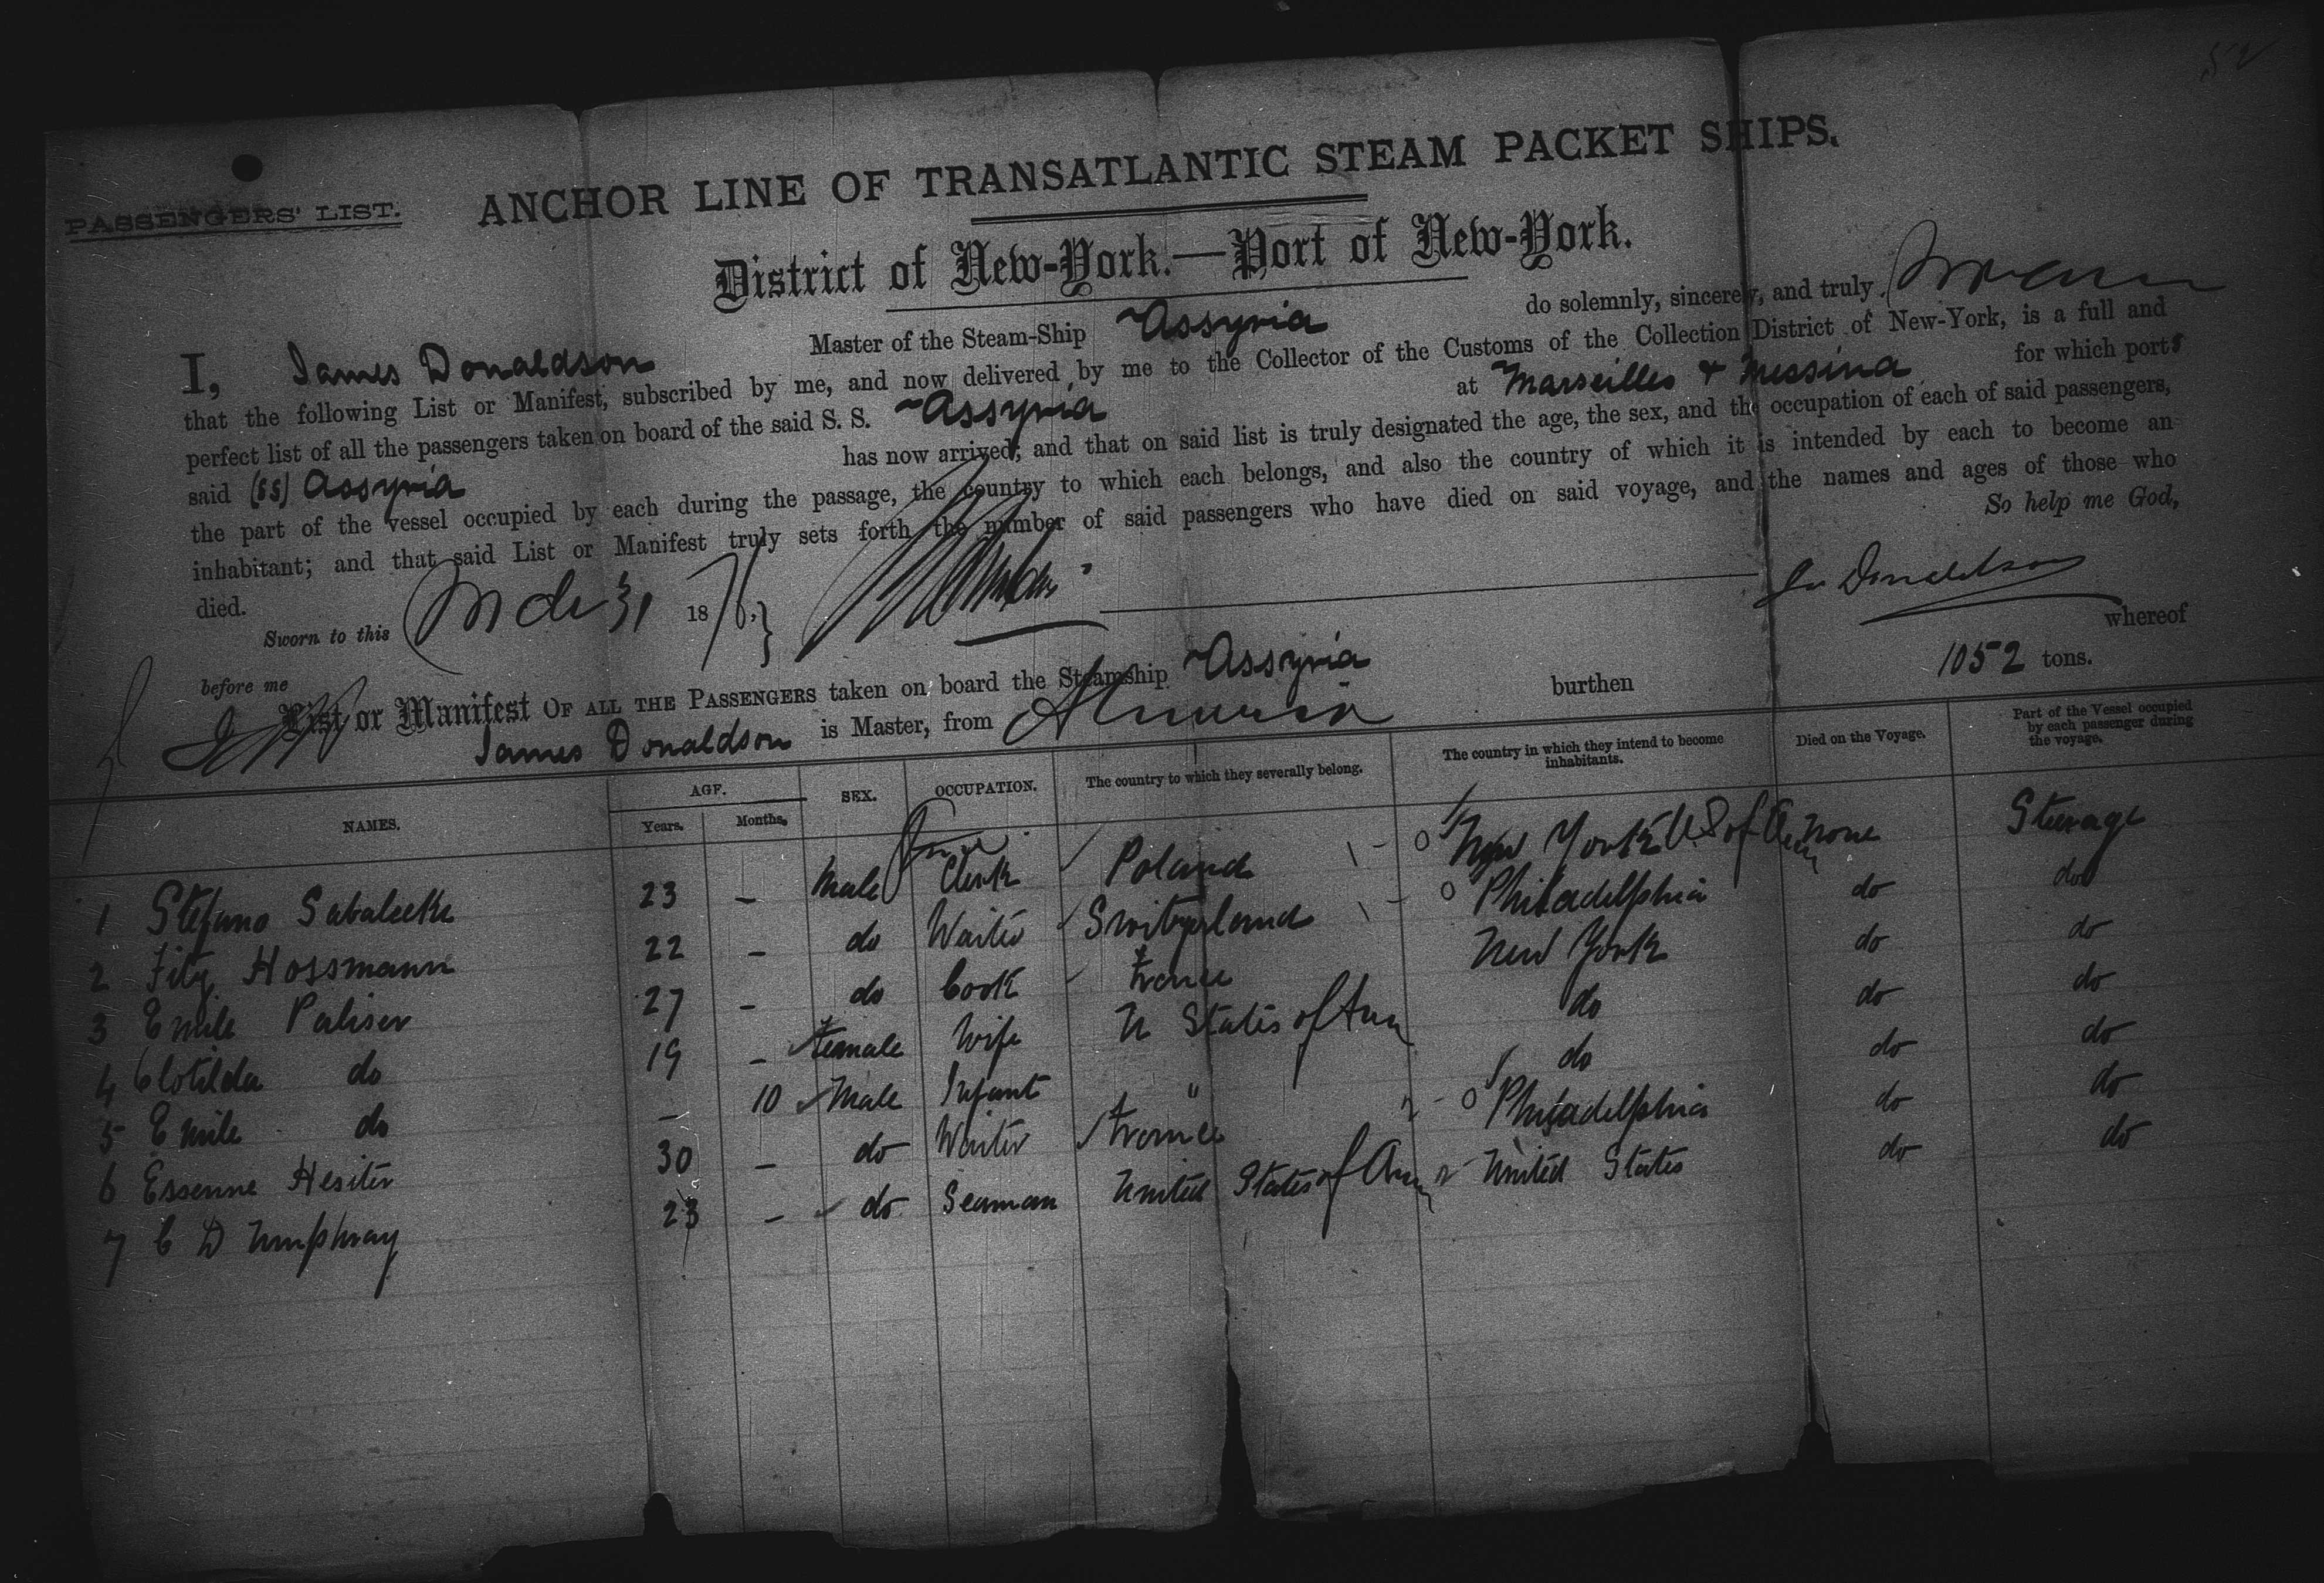 52
PASSENGERS' LIST.
ANCHOR LINE OF TRANSATLANTIC STEAM PACKET SHIPS.
District of New-York.—Port of New-York.
I, James Donaldson Master of the Steam-Ship Assyria do solemnly, sincerely, and truly swear
that the following List or Manifest, subscribed by me, and now delivered by me to the Collector of the Customs of the Collection District of New-York, is a full and
perfect list of all the passengers taken on board of the said S. S. Assyria at Marseilles & Messina for which ports
said (SS) Assyria has now arrived; and that on said list is truly designated the age, the sex, and the occupation of each of said passengers,
the part of the vessel occupied by each during the passage, the country to which each belongs, and also the country of which it is intended by each to become an
inhabitant; and that said List or Manifest truly sets forth the number of said passengers who have died on said voyage, and the names and ages of those who
died. So help me God,
Sworn to this Mch 31 1876,
Js Donaldson
before me
List or Manifest OF ALL THE PASSENGERS taken on board the Steamship Assyria burthen 1052 tons. whereof
James Donaldson is Master, from
NAMES. AGE. SEX. OCCUPATION. The country to which they severally belong. The country in which they intend to become inhabitants. Died on the Voyage. Part of the Vessel occupied by each passenger during the voyage.
Years. Months.
1 Stefano Sabaleeke 23 - Male Clerk Poland New York U.S of Am None Steerage
2 Fitz Hossmann 22 - do Waiter Switzerland Philadelphia do do
3 Emile Paliser 27 - do Cook France New York do do
4 Clotilda do 19 - Female Wife U States of Am do do do
5 Emile do - 10 Male Infant " do do do
6 Essenne Hesiter 30 - do Waiter France Philadelphia do do
7 C D Umphray 23 - do Seaman United States of Am United States do do